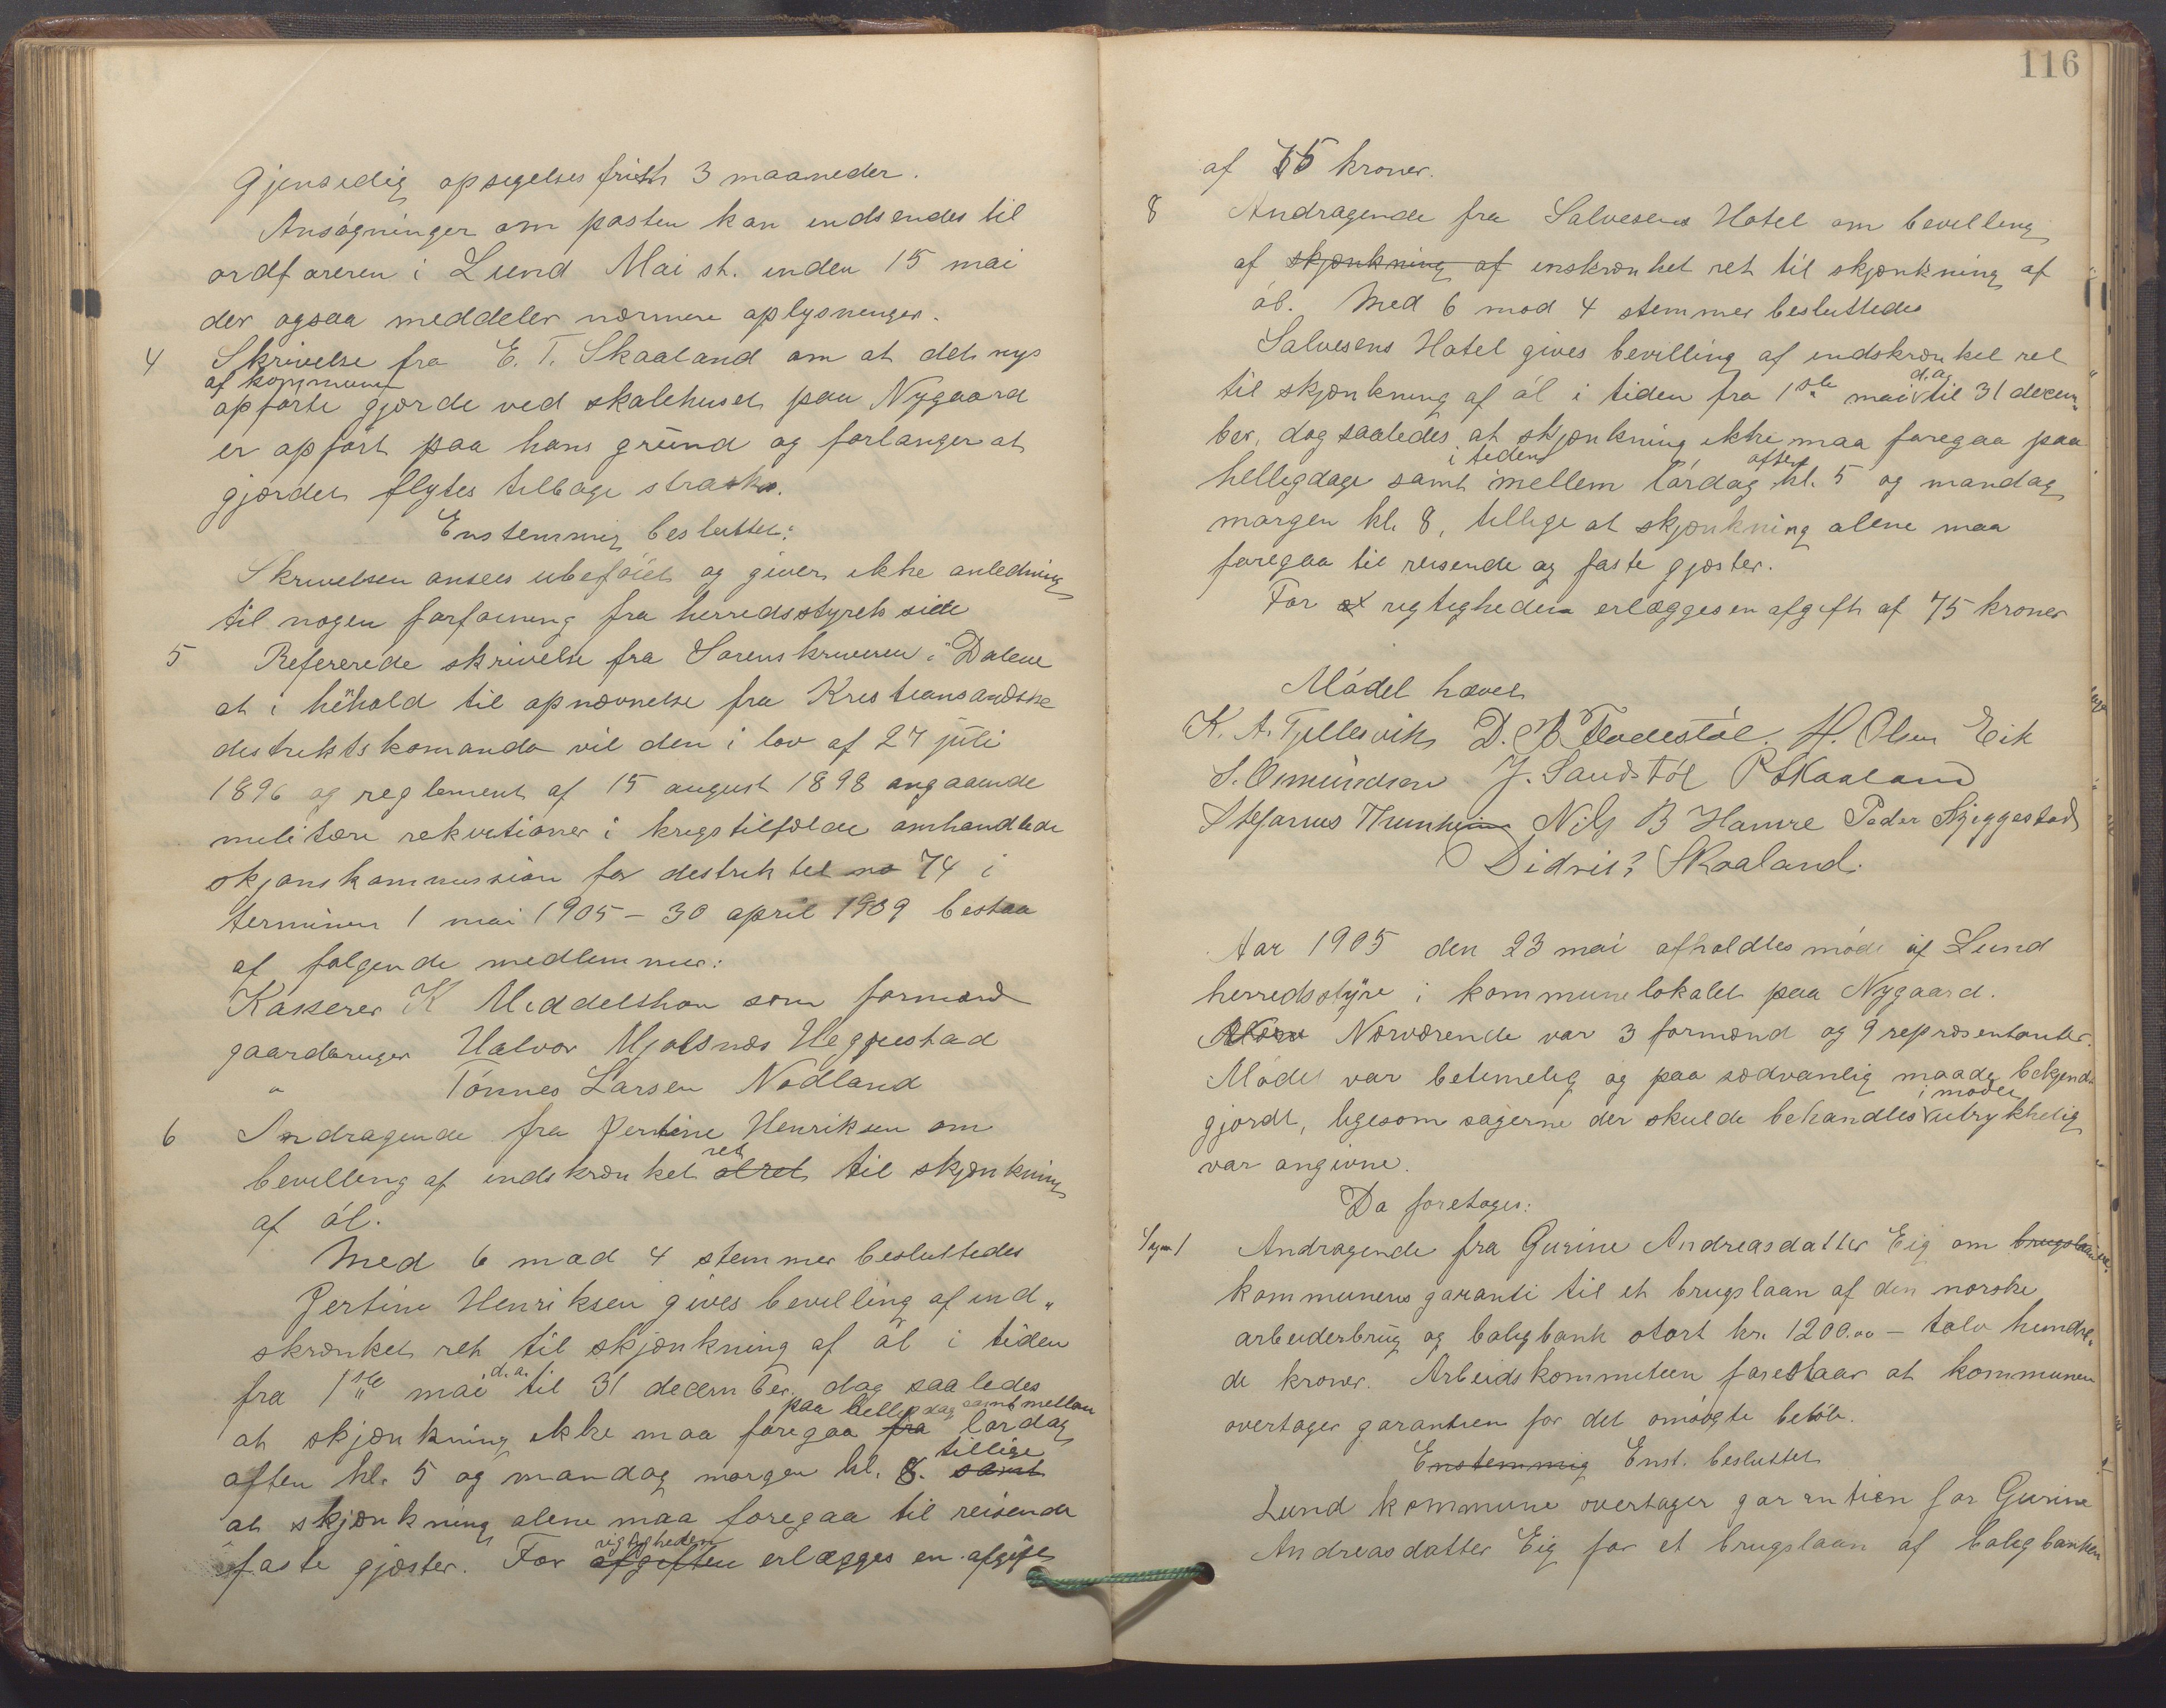 gjensidig opsigelses frist 3 maaneder.
Ansøgninger om posten kan indsendes til
ordføreren i Lund Mai st. inden 15 mai
der ogsaa meddeler nærmere oplysninger.
4 Skrivelse fra E. T. Skaaland om at det nys
af kommunen
opførte gjærde ved skolehuset paa Nygaard
er opført paa hans grund og forlanger at
gjærdet flytes tilbage straks.
Enstemmig besluttet:
Skrivelsen ansees ubeføiet og giver ikke anledning
til nogen forføining fra herredsstyrets side
5 Refererede skrivelse fra Sorenskriveren i Dalene
at i hĕhold til opnævnelse fra Kristiansandske
distriktskomando vil den i lov af 27 juli
1896 og reglement af 15 august 1898 angaaende
militære rekvisitioner i krigstilfælde omhandlede
skjønskommission for distriktet no 74 i
terminen 1 mai 1905 - 30 april 1909 bestaa
af følgende medlemmer:
Kasserer K Middelthon som formand
gaardbruger Halvor Mjølsnæs Heggestad
" Tønnes Larsen Nodland
6 Andragende fra Jertine Henriksen om
ret
bevilling af indskrænket ølret til skjænkning
af øl.
Med 6 mod 4 stemmer besluttedes
Jertine Henriksen gives bevilling af ind-
skrænket ret til skjænkning af øl i tiden
fra 1ste mai d.a. til 31 december, dog saaledes
paa helligdag samt mellem
at skjænkning ikke maa foregaa fra lørdag
tillige
aften kl. 5 og mandag morgen kl. 8. samt
at skjænkning alene maa foregaa til reisende
rigtigheden
faste gjæster. For afgiften erlægges en afgift
116
af 75 kroner.
8 Andragende fra Salvesens Hotel om bevilling
af skjænkning af inskrænket ret til skjænkning af
øl. Med 6 mod 4 stemmer besluttedes
Salvesens Hotel gives bevilling af indskrænket ret
til skjænkning af øl i tiden fra 1ste mai d.a. til 31 decem-
ber, dog saaledes at skjænkning ikke maa foregaa paa
i tiden aften
helligdage samt mellem lørdag kl. 5 og mandag
morgen kl. 8, tillige at skjænkning alene maa
foregaa til reisende og faste gjæster.
For rigtigheden erlægges en afgift af 75 kroner
Mødet hævet
K. A. Fjellesvik D. B Flodestøl. H. Olsen Eik
S. Osmundsen J. Sandstøl P Skaaland
Stefanus Thunheim Nils B Hamre Peder Skjeggestad
Didrik? Skaaland.
Aar 1905 den 23 mai afholdtes møde af Lund
herredsstyre i kommunelokalet paa Nygaard.
Nærværende var 3 formænd og 9 repræsentanter.
Mødet var betimelig og paa sædvanlig maade bekjendt-
i møder
gjordt, ligesom sagerne der skulde behandles utrykkelig
var angivne.
Da foretoges:
Sag 1 Andragende fra Gurine Andreasdatter Eig om brugslaan
kommunens garanti til et brugslaan af den norske
arbeiderbrug og boligbank stort kr. 1200.00 - tolv hundre-
de kroner. Arbeidskommiteen foreslaar at kommunen
overtager garantien for det omsøgte beløb.
Enstemmig Enst. besluttet
Lund kommune overtager garantien for Gurine
Andreasdatter Eig for et brugslaan af boligbanken